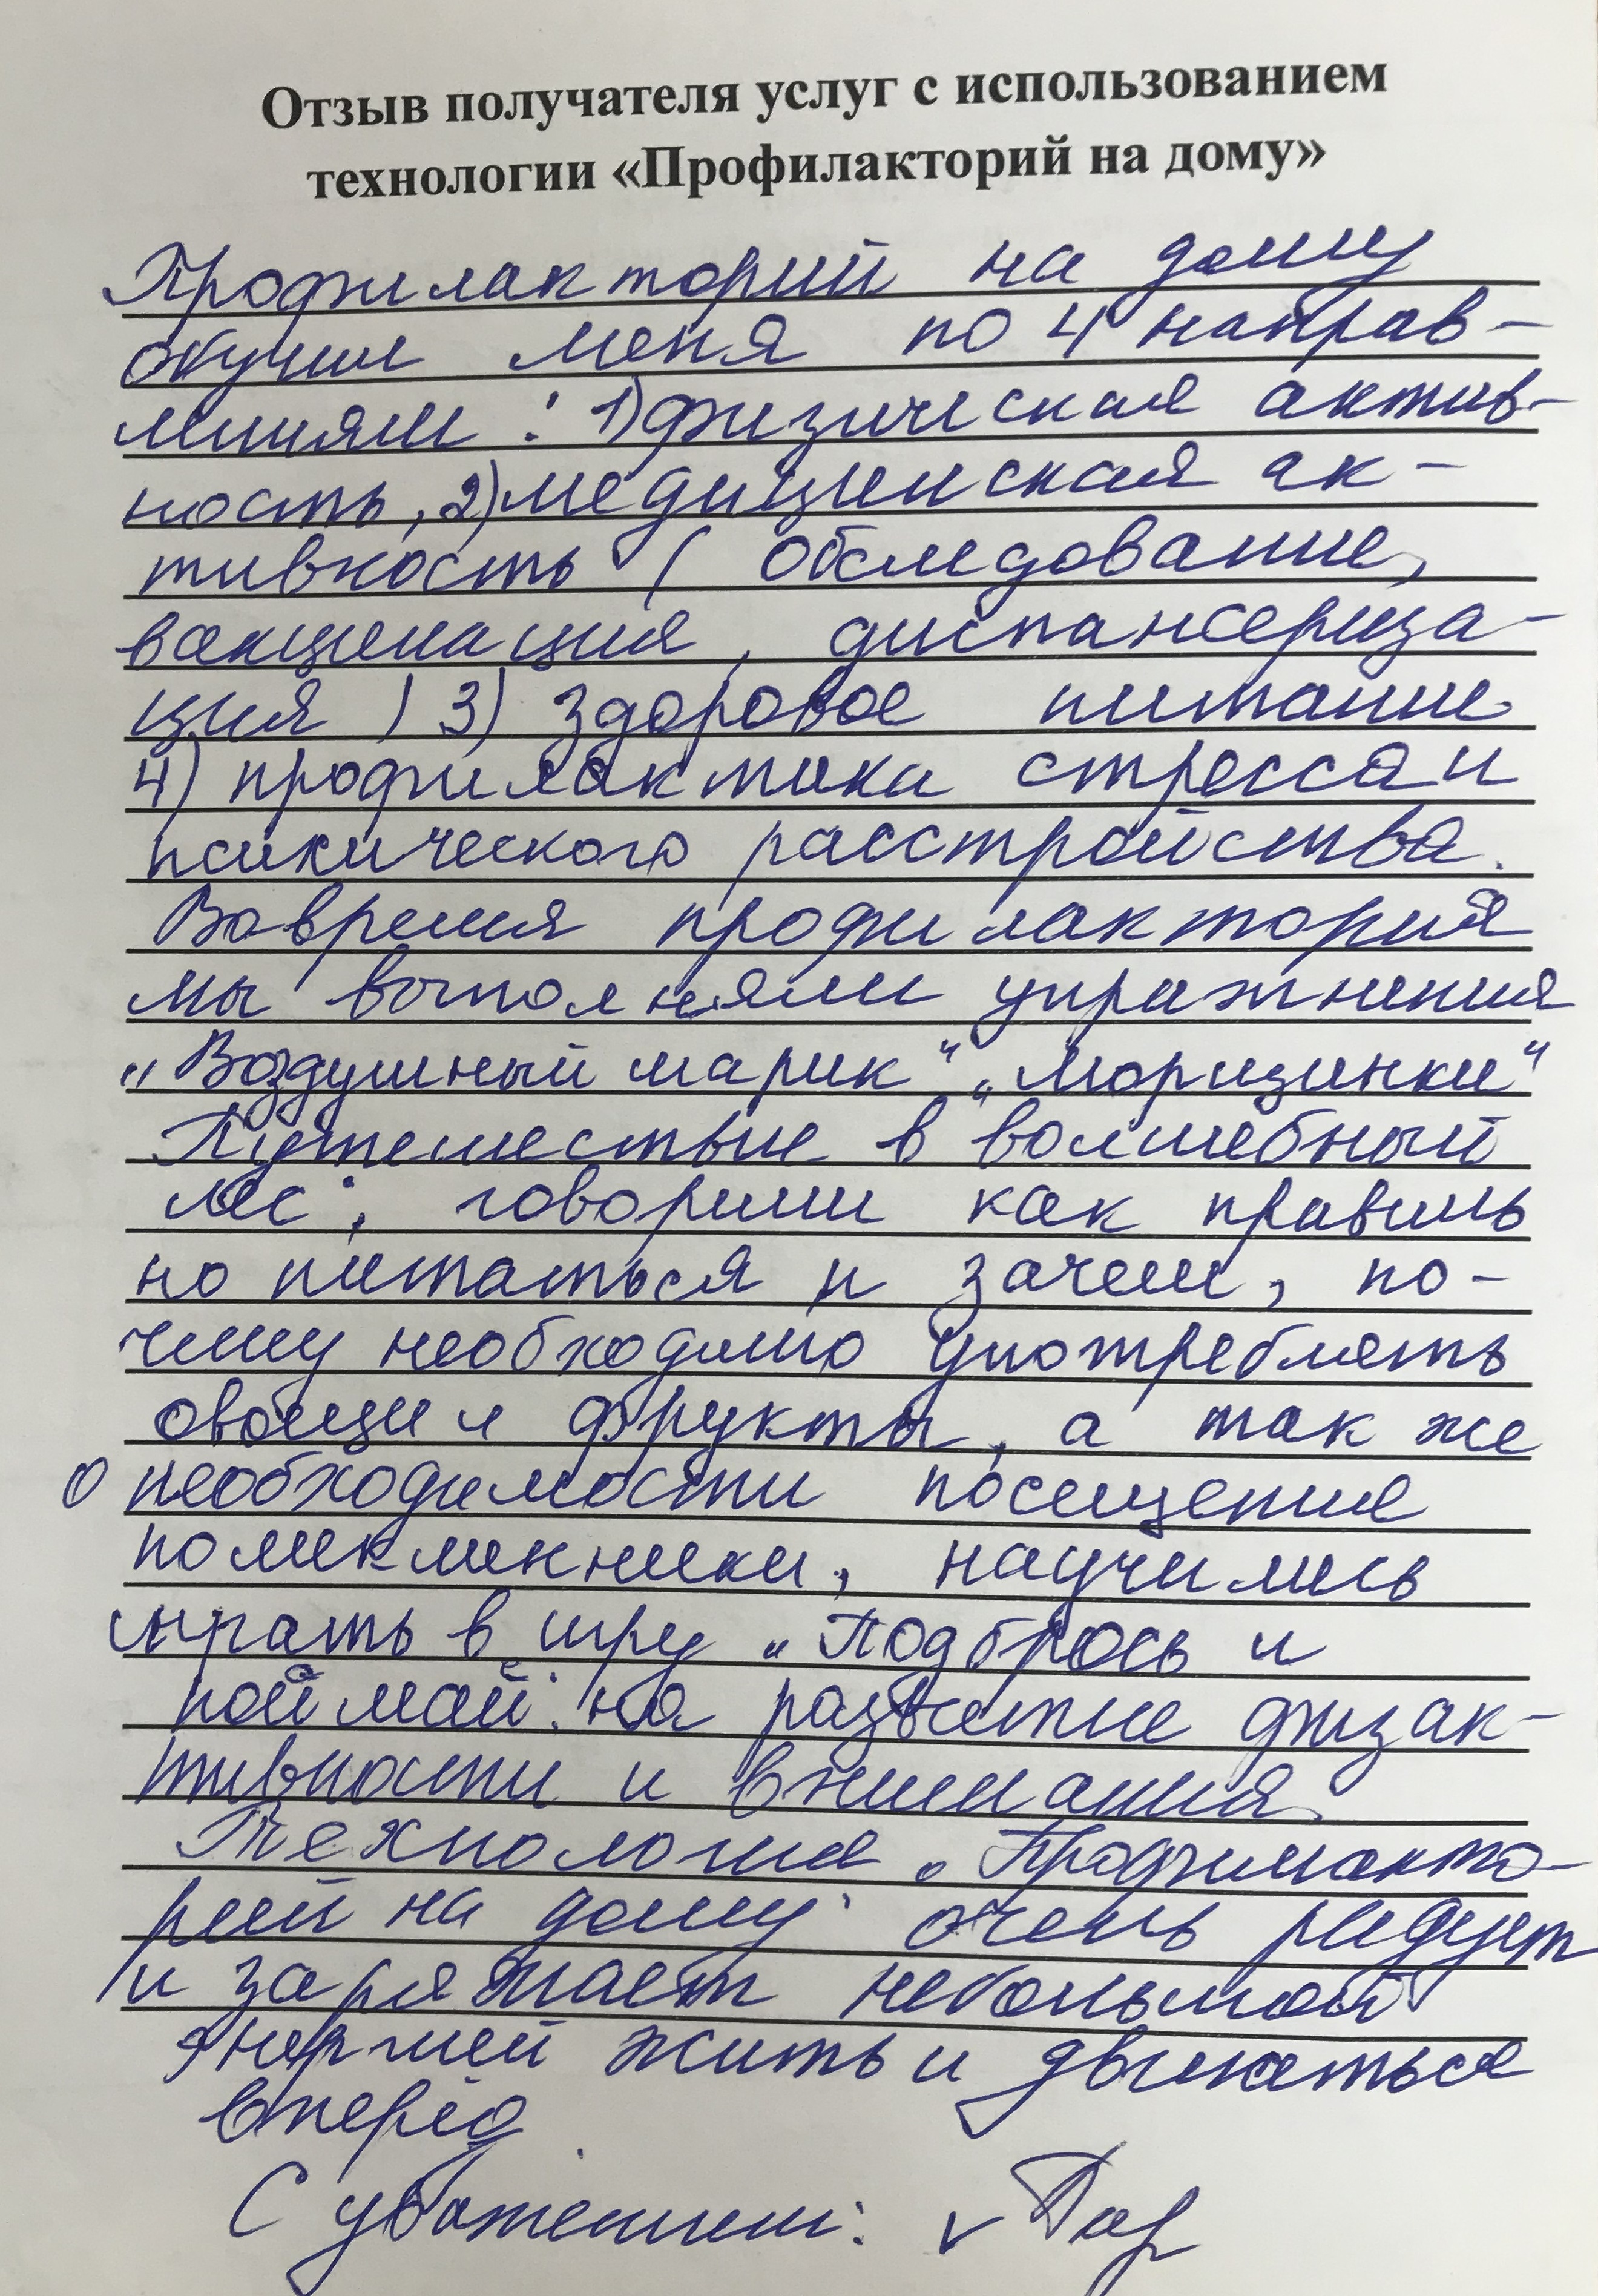 Отзыв получателя услуг с использованием
технологии «Профилакторий на дому»
Профилакторий на дому
обучил меня по 4 направ-
лениям: 1) физическая актив-
ность, 2) медицинская ак-
тивность (обследование,
вакцинация, диспансериза-
ция) 3) здоровое питание
4) профилактика стресса и
психического расстройства.
Во время профилактория
мы выполняли упражнения
„Воздушный шарик" „Морщинки"
Путешествие в волшебный
лес", говорили как правиль
но питаться и зачем, по-
чему необходимо употреблять
овощи и фрукты, а так же
о необходимости посещения
поликлинники, научились
играть в игру „Подбрось и
поймай" на развитие физак-
тивности и внимания.
Технология „Профилакто-
рий на дому" очень радует
и заряжает небольшой
энергией жить и двигаться
вперёд
С уважением: v